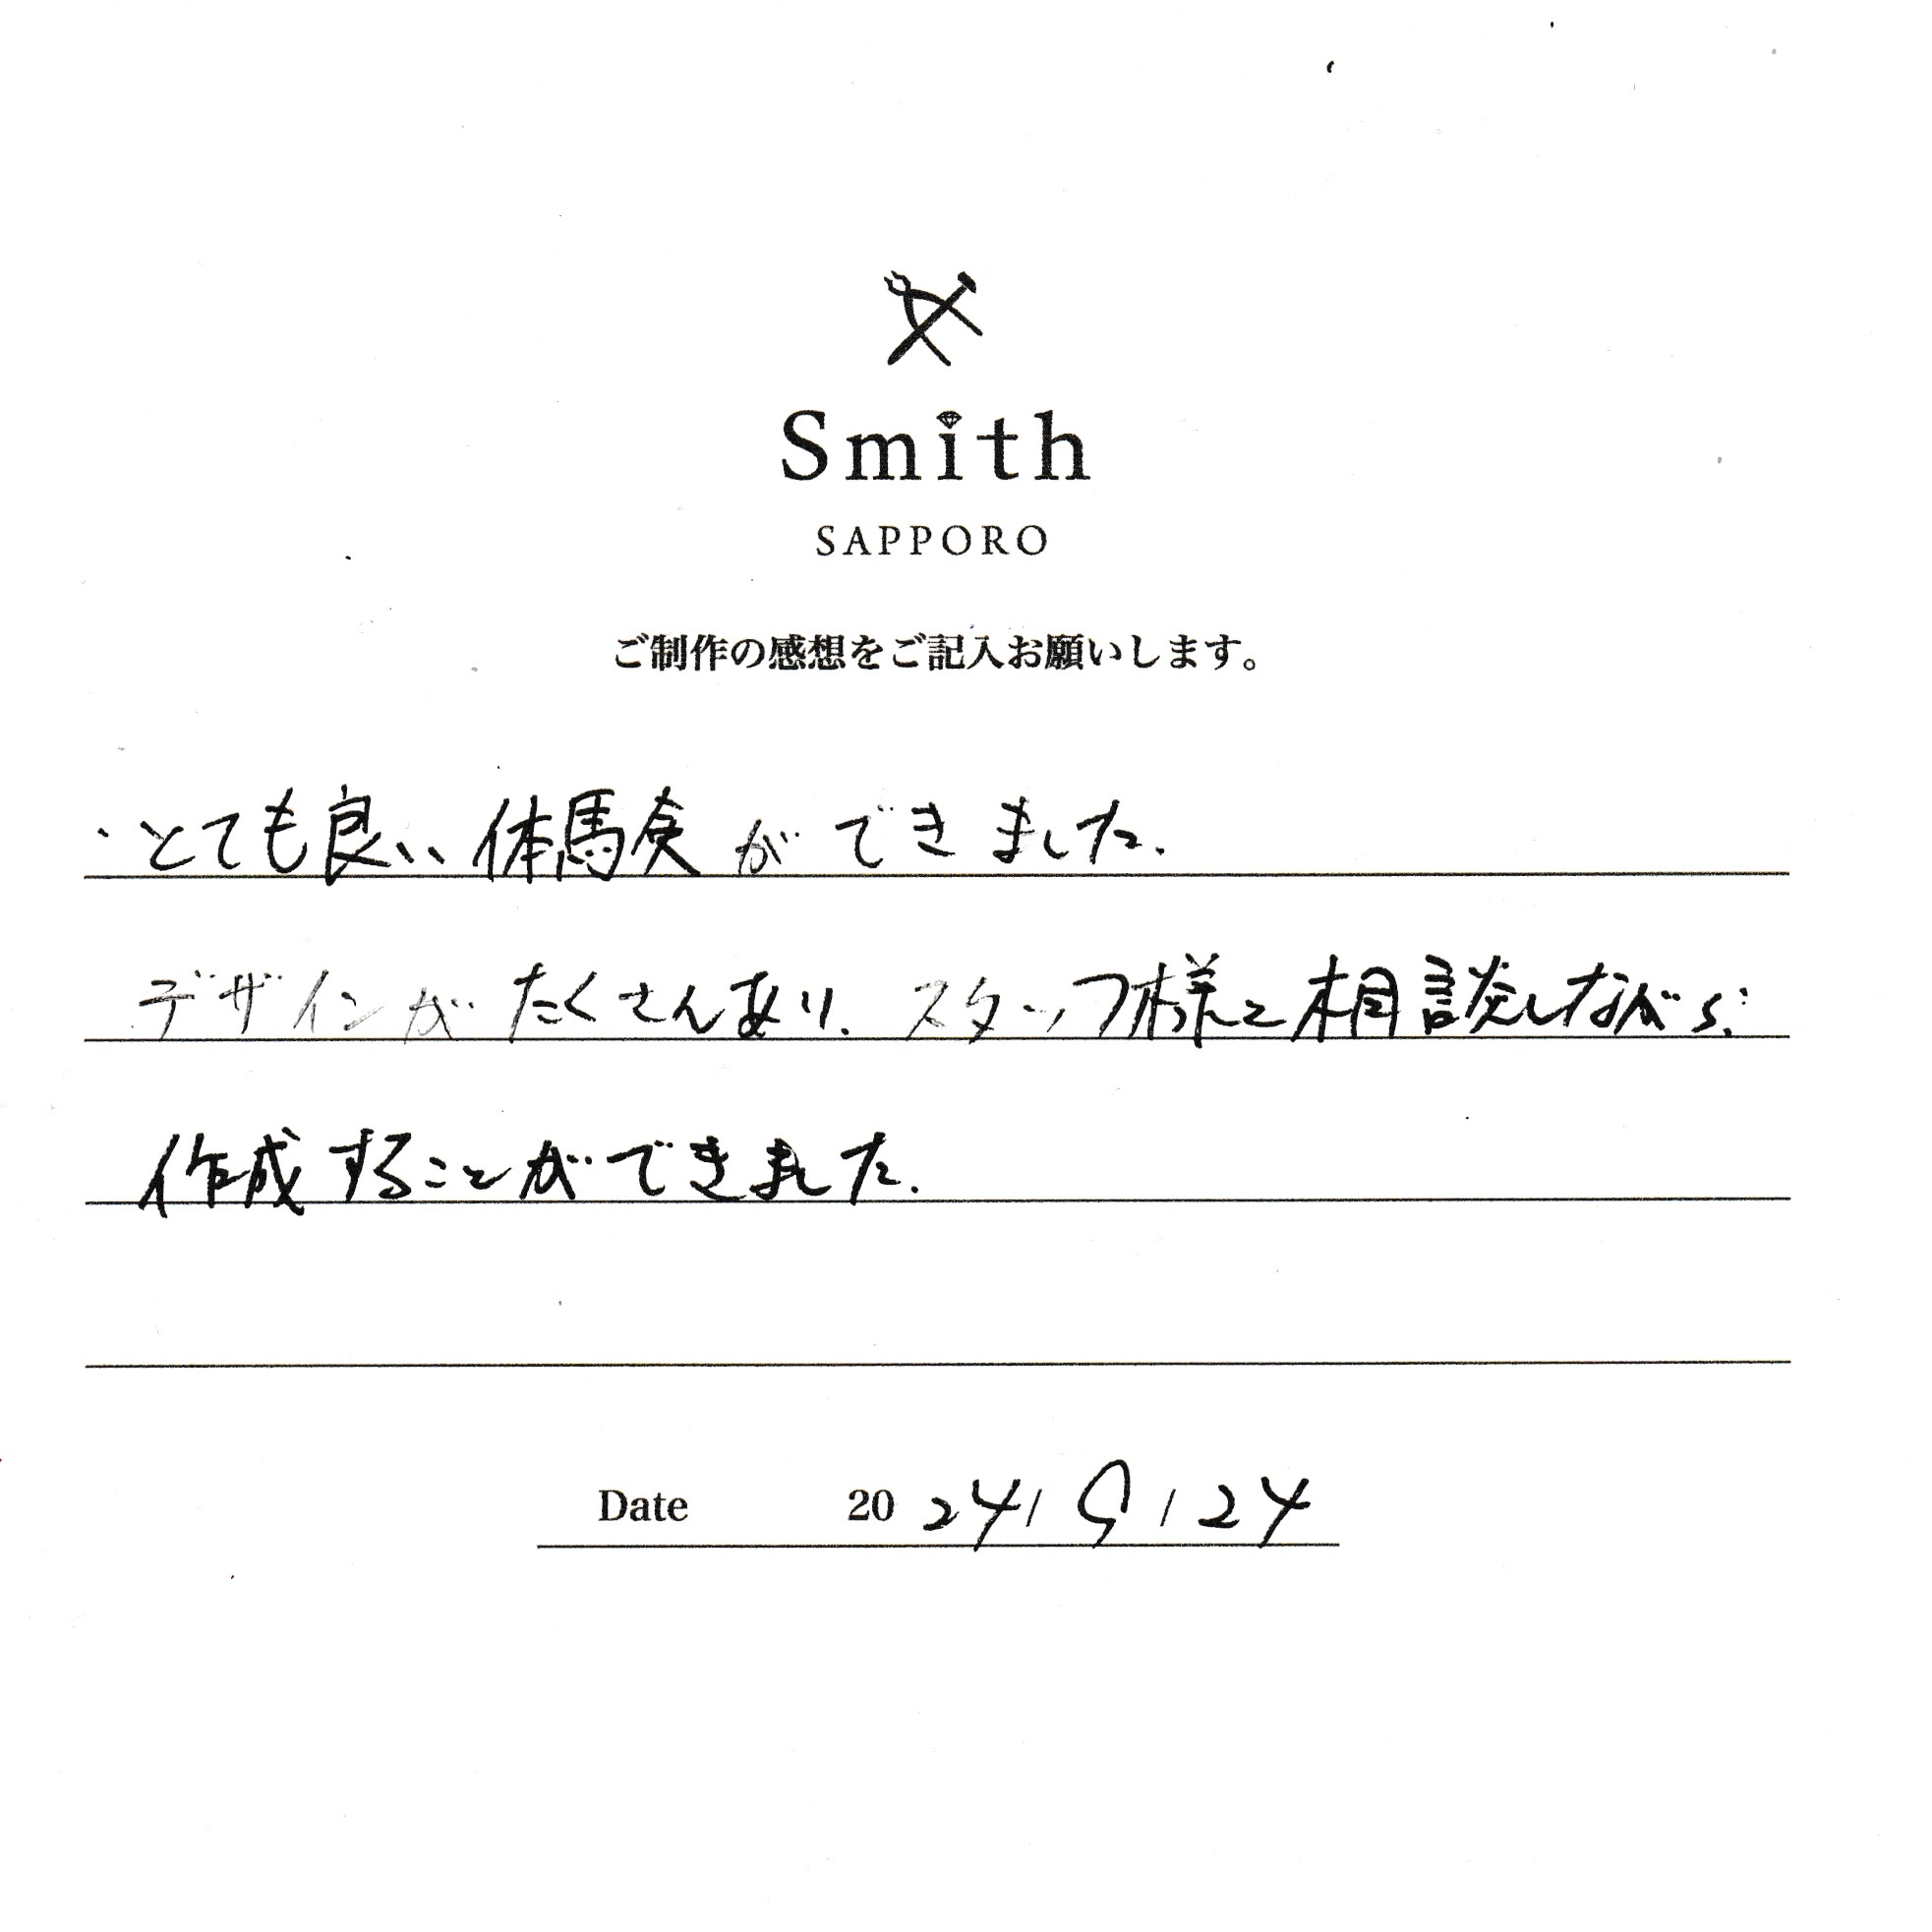 Smith
SAPPORO
ご制作の感想をご記入お願いします。
・とても良い体験ができました.
デザインがたくさんあり、スタッフ様と相談しながら
作成することができました.
Date 2024/9/24